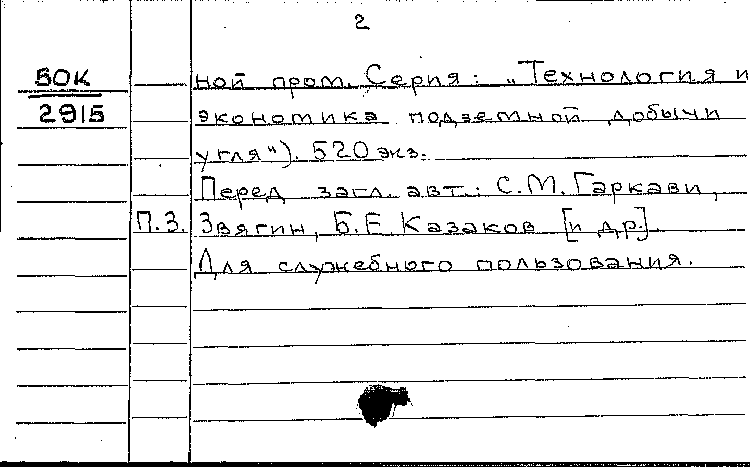 2
БОК
2915
ной пром. Серия: „Технология и
экономика подземной добычи
угля"). 520 экз.
Перед загл. авт.: С.М. Гаркави,
П.З. Звягин, Б.Е Казаков [и др.].
Для служебного пользования.